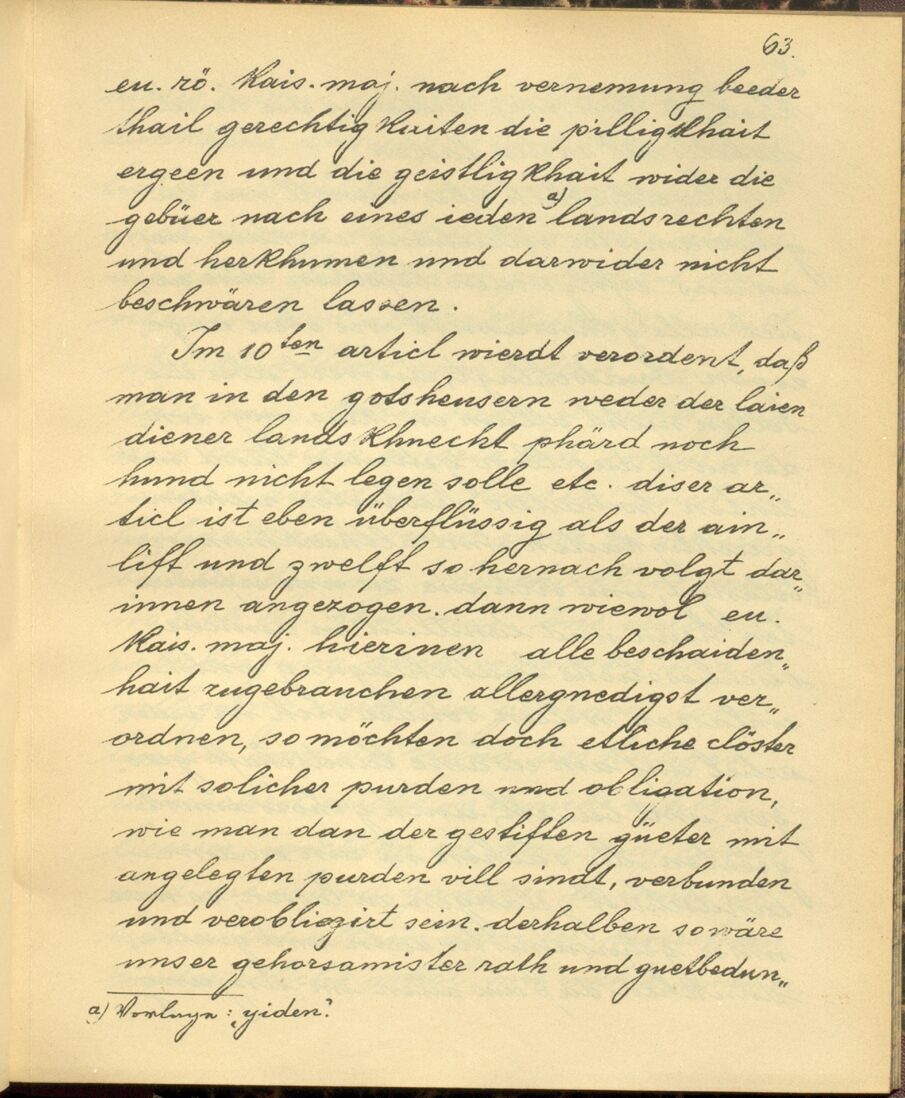 63.
eu. rö. Kais. maj. nach vernemung beeder
thail gerechtigkaiten die pilligkhait
ergeen und die geistligkhait wider die
gebüer nach eines ieden a) landsrechten
und herkhumen und darwider nicht
beschwären lassen.
Im 10ten articl wierdt verordent, daß
man in den gotsheusern weder der laien
diener landskhnecht phärd noch
hund nicht legen solle etc. diser ar„
ticl ist eben überflüssig als der ain„
lift und zwelft so hernach volgt dar„
innen angezogen. dann wiewol eu.
Kais. maj. hierinen alle beschaiden„
hait zugebrauchen allergnedigst ver„
ordnen, so möchten doch etliche clöster
mit solicher purden und obligation,
wie man dan der gestiften güeter mit
angelegten purden vill sindt, verbunden
und verobliegirt sein. derhalben so wäre
unser gehorsamister rath und guetbedun„
a) Vorlage: „yiden".